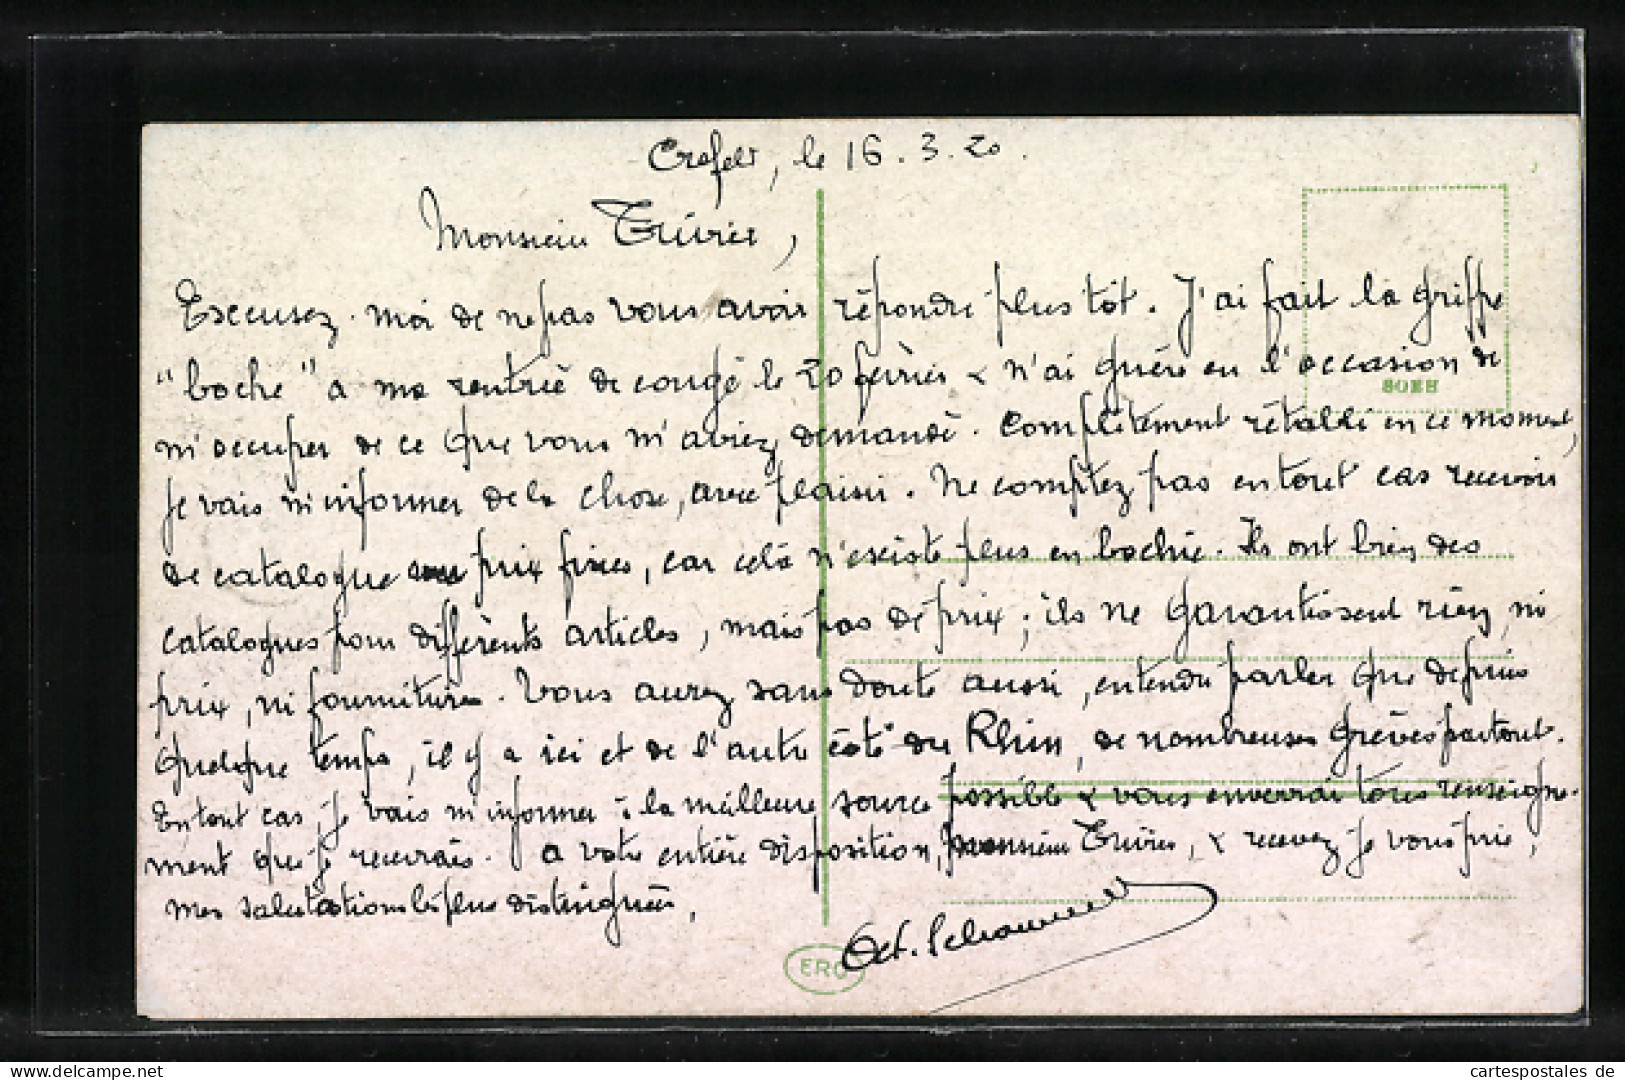 Crefeld, le 16.3.20.
Monsieur Trivier,
Excusez-moi de ne pas vous avoir répondre plus tôt. J'ai fait la griffe
"boche" à ma rentrée de congé le 20 février & n'ai guère eu l'occasion de
m'occuper de ce que vous m'aviez demandé. Complètement rétabli en ce moment,
je vais m'informer de la chose, avec plaisir. Ne comptez pas en tout cas recevoir
de catalogue prix fixes, car celà n'existe plus en bochie. Ils ont bien des
catalogues pour différents articles, mais pas de prix; ils ne garantissent rien, ni
prix, ni fournitures. Vous aurez sans doute aussi, entendu parler que depuis
quelque temps, il y a ici et de l'autre côté du Rhin, de nombreuses grèves partout.
En tout cas, je vais m'informer à la meilleure source possible & vous enverrai tous renseigne-
ment que je recevrais. A votre entière disposition, Monsieur Trivier, & recevez je vous prie,
mes salutations les plus distinguées,
Oct.
ERO
cartespostales de